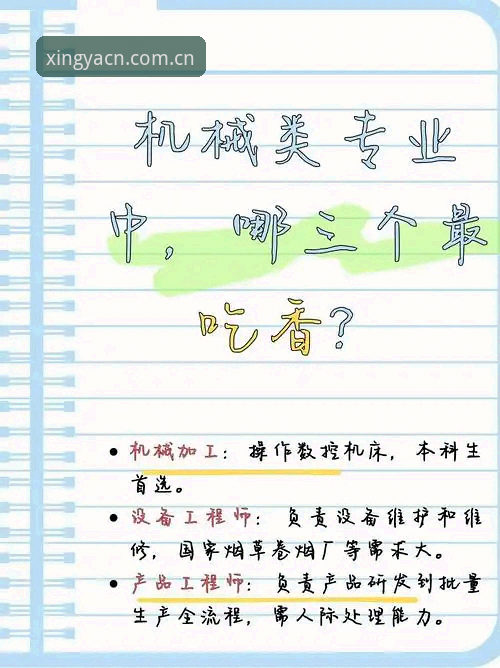 xingyacn.com.cn
机械类专业
中，哪三个最
吃香？
• 机械加工：操作数控机床，本科生
首选。
• 设备工程师：负责设备维护和维
修，国家烟草卷烟厂等需求大。
• 产品工程师：负责产品研发到批量
生产全流程，需人际处理能力。